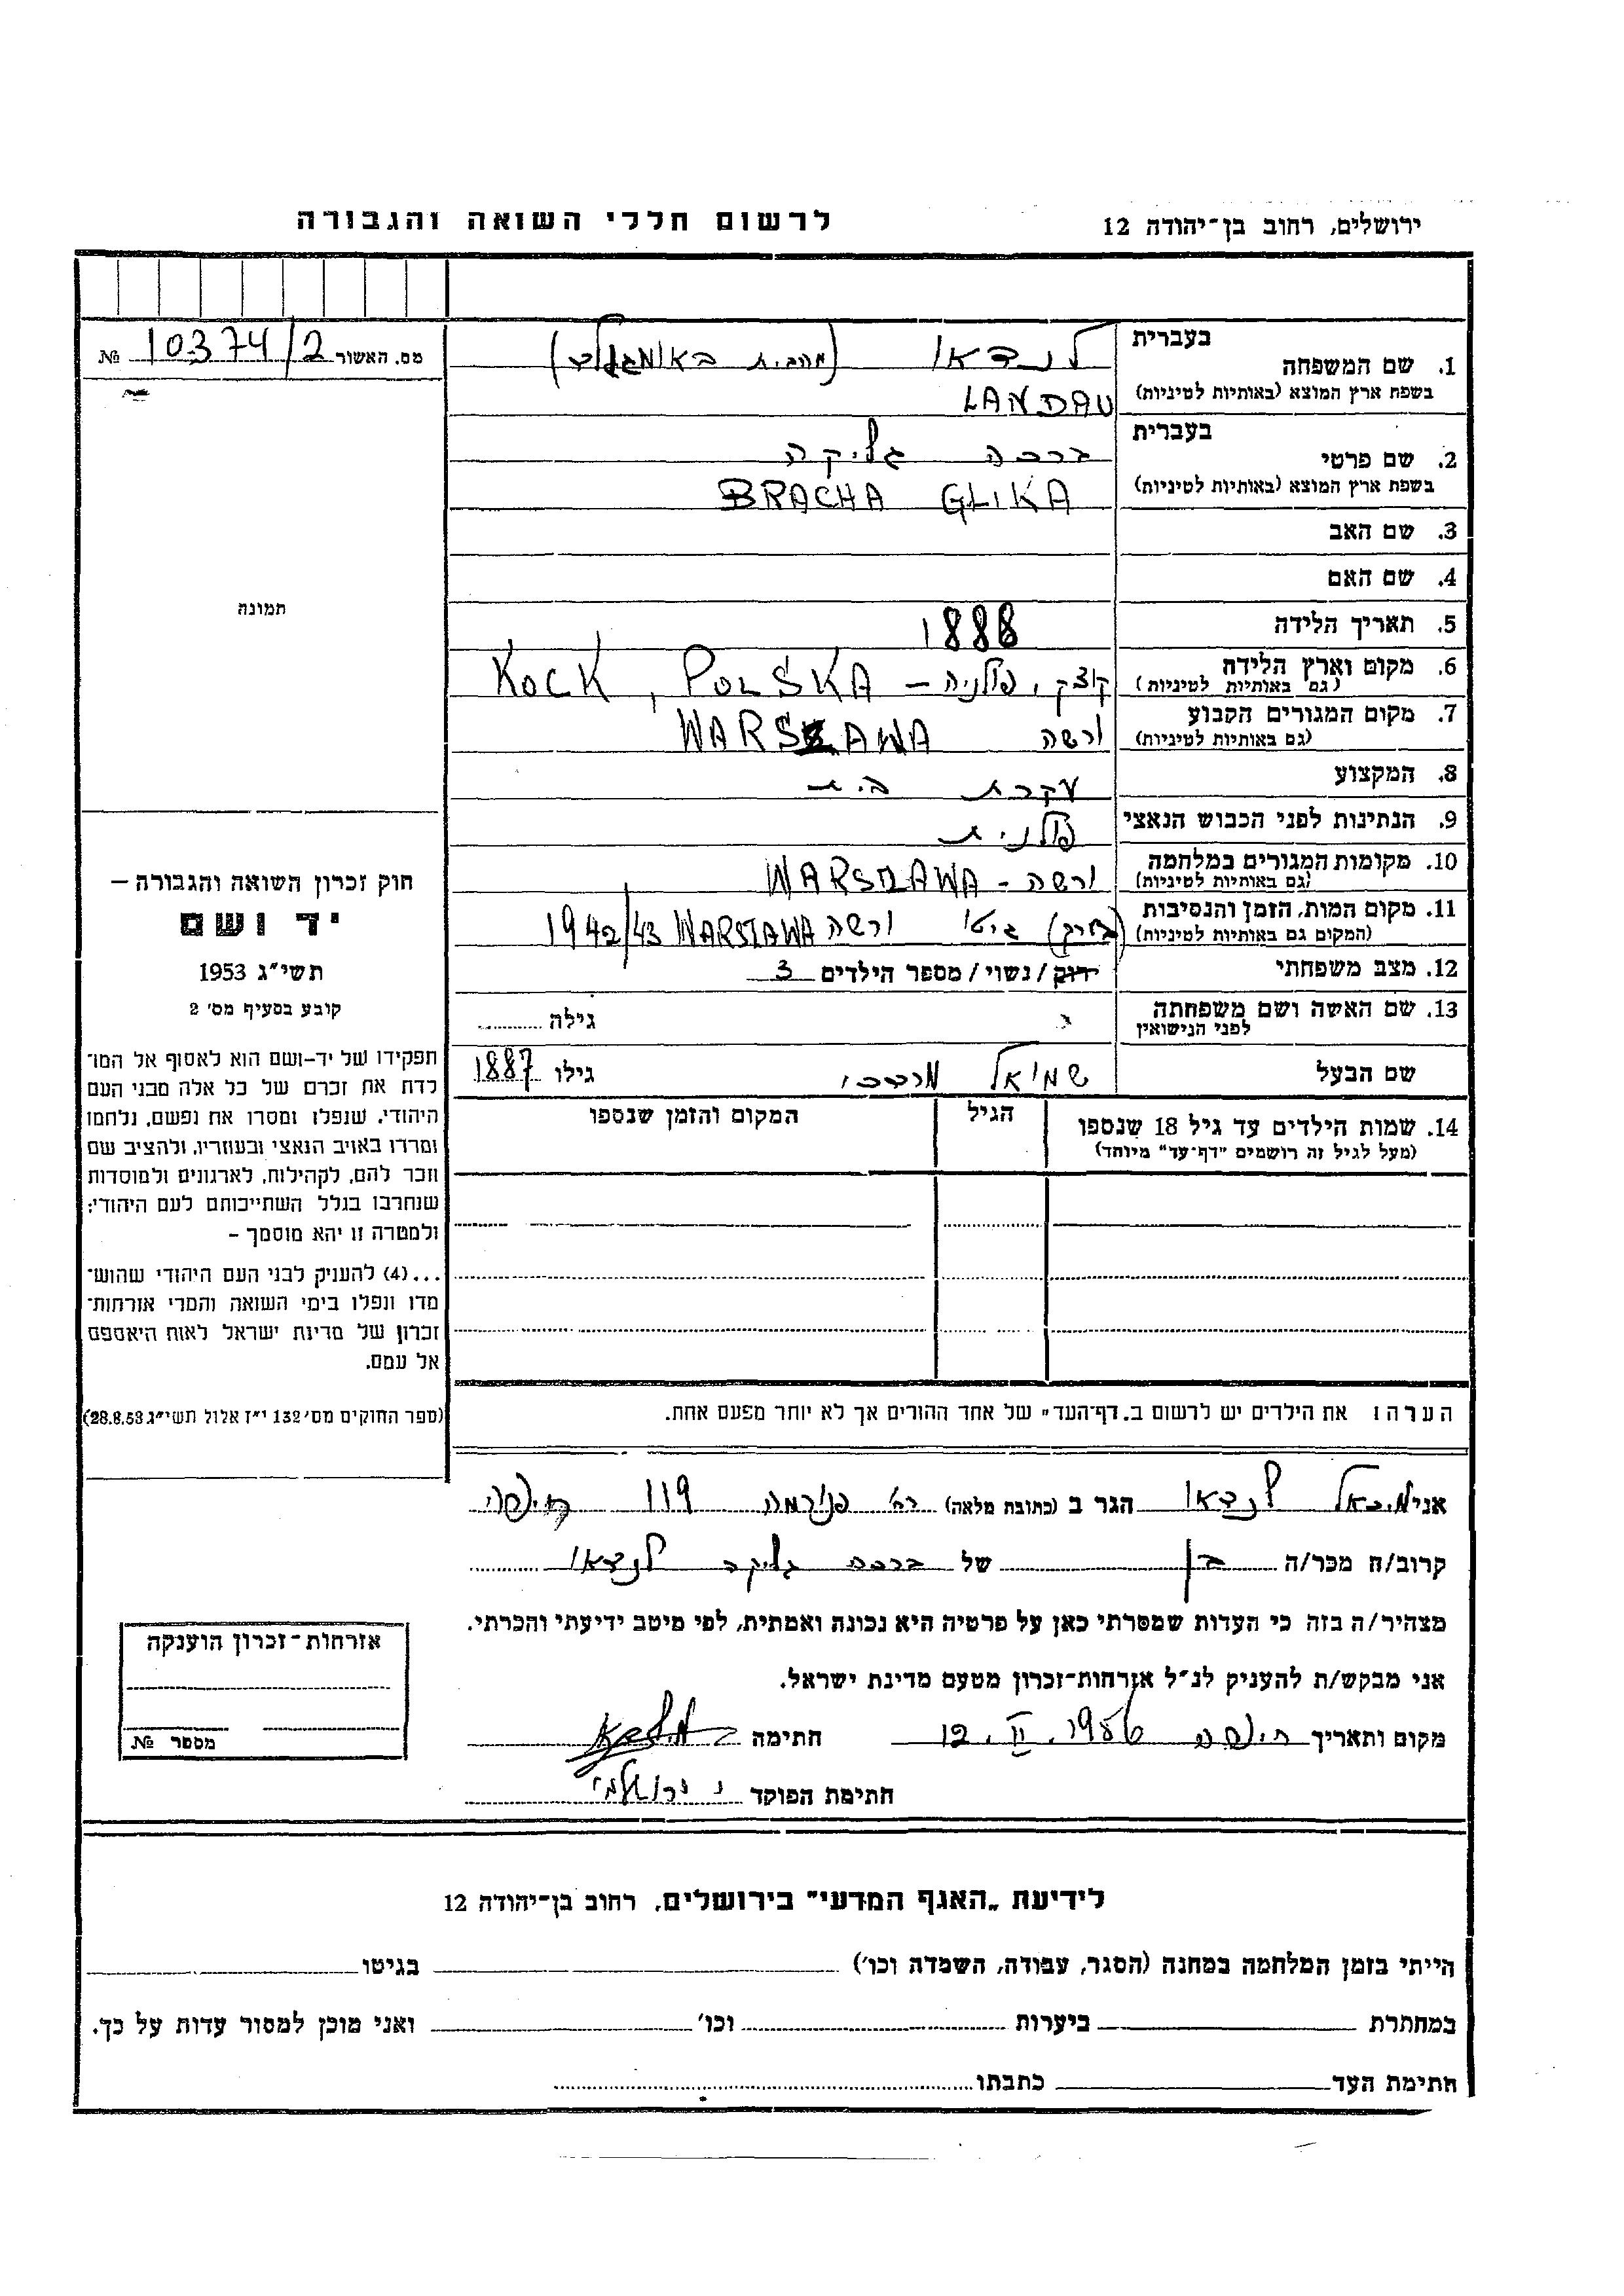 לרשום חללי השואה והגבורה
ירושלים, רחוב בן־יהודה 12
מס. האשור 10374/2 №
תמונה
חוק זכרון השואה והגבורה –
יד ושם
תשי״ג 1953
קובע בסעיף מס׳ 2
תפקידו של יד-ושם הוא לאסוף אל המו־
לדת את זכרם של כל אלה מבני העם
היהודי, שנפלו ומסרו את נפשם, נלחמו
ומרדו באויב הנאצי ובעוזריו, ולהציב שם
וזכר להם, לקהילות, לארגונים ולמוסדות
שנחרבו בגלל השתייכותם לעם היהודי;
ולמטרה זו יהא מוסמך –
...(4) להעניק לבני העם היהודי שהוש־
מדו ונפלו בימי השואה והמרי אזרחות־
זכרון של מדינת ישראל לאות היאספם
אל עמם.
(ספר החוקים מס׳ 132 י״ז אלול תשי״ג 28.8.53)
בעברית
1. שם המשפחה לנדאו (מהבית
בשפת ארץ המוצא (באותיות לטיניות) LANDAU
בעברית
2. שם פרטי ברכה גליקה
בשפת ארץ המוצא (באותיות לטיניות) BRACHA GLIKA
3. שם האב
4. שם האם
5. תאריך הלידה 1888
6. מקום וארץ הלידה קוצק, פולניה – KOCK, POLSKA
(גם באותיות לטיניות)
7. מקום המגורים הקבוע ורשה WARSZAWA
(גם באותיות לטיניות)
8. המקצוע עקרת בית
9. הנתינות לפני הכבוש הנאצי פולנית
10. מקומות המגורים במלחמה ורשה – WARSZAWA
(גם באותיות לטיניות)
11. מקום המות, הזמן והנסיבות גיטו ורשה WARSZAWA 1942/43
(המקום גם באותיות לטיניות)
12. מצב משפחתי רווק / נשוי / מספר הילדים 3
13. שם האשה ושם משפחתה גילה
לפני הנישואין
שם הבעל שמואל מרדכי גילו 1887
14. שמות הילדים עד גיל 18 שנספו הגיל המקום והזמן שנספו
(מעל לגיל זה רושמים ״דף־עד״ מיוחד)
הערה: את הילדים יש לרשום ב„דף־העד״ של אחד ההורים אך לא יותר מפעם אחת.
אני מיכאל לנדאו הגר ב (כתובת מלאה) רח׳ פנורמה 119 חיפה
קרוב/ה מכר/ה בן של ברכה גליקה לנדאו
מצהיר/ה בזה כי העדות שמסרתי כאן על פרטיה היא נכונה ואמתית, לפי מיטב ידיעתי והכרתי.
אני מבקש/ת להעניק לנ״ל אזרחות־זכרון מטעם מדינת ישראל.
מקום ותאריך חיפה 12. II. 1956 חתימה
חתימת הפוקד י ירושלמי
אזרחות־זכרון הוענקה
מספר №
לידיעת „האגף המדעי״ בירושלים, רחוב בן־יהודה 12
הייתי בזמן המלחמה במחנה (הסגר, עבודה, השמדה וכו׳) בגיטו
במחתרת ביערות וכו׳ ואני מוכן למסור עדות על כך.
חתימת העד כתבתו